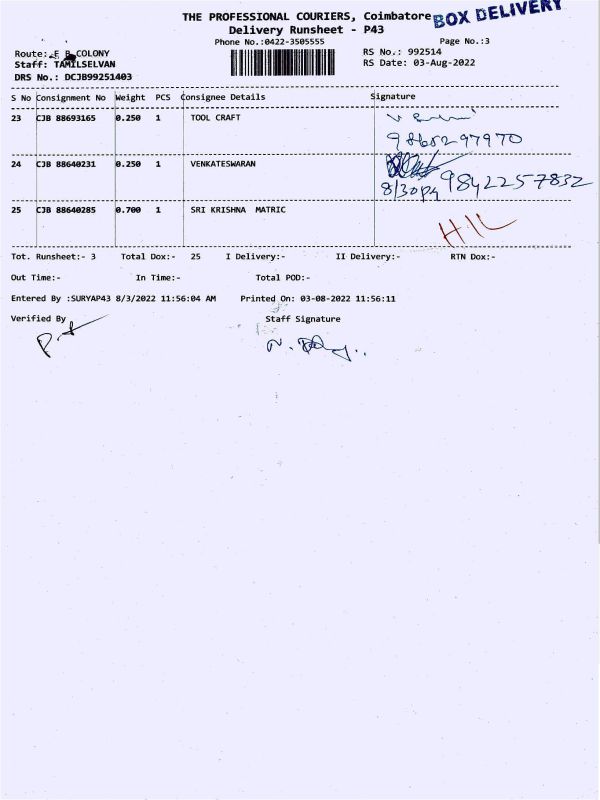 THE PROFESSIONAL COURIERS, Coimbatore
BOX DELIVERY
Delivery Runsheet - P43
Phone No.:0422-3505555
Page No.:3
Route: E B COLONY
RS No.: 992514
Staff: TAMILSELVAN
RS Date: 03-Aug-2022
DRS No.: DCJB99251403
S No Consignment No Weight PCS Consignee Details Signature
23 CJB 88693165 0.250 1 TOOL CRAFT
9865297970
24 CJB 88640231 0.250 1 VENKATESWARAN
8/30pm 9842257832
25 CJB 88640285 0.700 1 SRI KRISHNA MATRIC
Tot. Runsheet:- 3 Total Dox:- 25 I Delivery:- II Delivery:- RTN Dox:-
Out Time:- In Time:- Total POD:-
Entered By :SURYAP43 8/3/2022 11:56:04 AM Printed On: 03-08-2022 11:56:11
Verified By Staff Signature